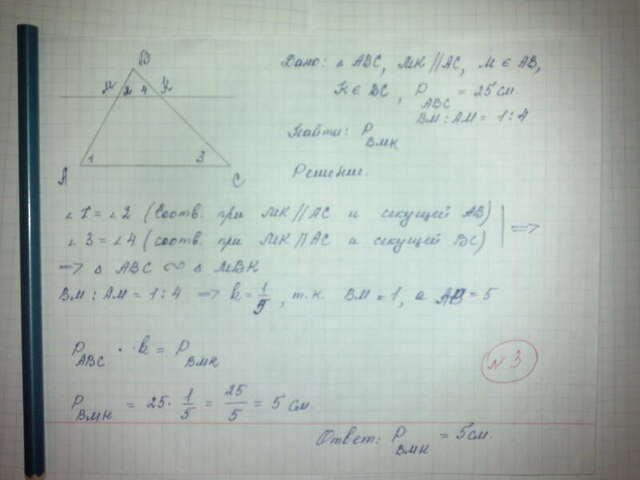 B
M 2 4 K
A 1 3 C
Дано: △ ABC, MK // AC, M ∈ AB,
K ∈ BC, P ABC = 25 см.
BM : AM = 1 : 4
Найти: P BMK
Решение.
∠ 1 = ∠ 2 (соотв. при MK // AC и секущей AB)
∠ 3 = ∠ 4 (соотв. при MK // AC и секущей BC) | =>
=> △ ABC ∾ △ MBK
BM : AM = 1 : 4 => k = 1/5, т.к. BM = 1, а AB = 5
P ABC · k = P BMK
N 3
P BMK = 25 · 1/5 = 25/5 = 5 см.
Ответ: P BMK = 5 см.